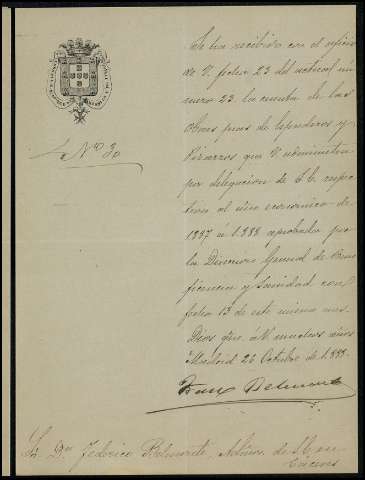 Nº 30
Se ha recibido con el oficio
de V. fecha 23 del actual nú-
mero 23 la cuenta de las
Obras pias de Cepedera y
Pizarros que V. administra
por delegacion de S.E. respec-
tiva al año economico de
1887 á 1888 aprobada por
la Direccion General de Bene
ficencia y Sanidad con
fecha 13 de este mismo mes.
Dios gue á V. muchos años
Madrid 26 Octubre de 1888.
Belmonte
Sr. Dn Federico Belmonte, Admor. de
Cáceres